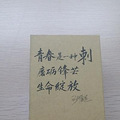 青春是一种刺
磨砺锋芒
生命绽放